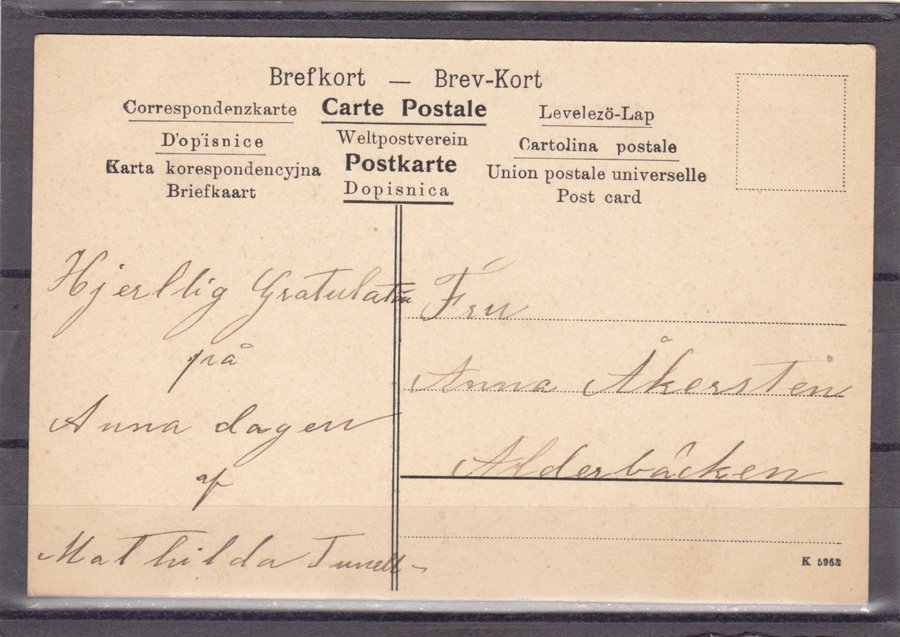 Brefkort — Brev-Kort
Correspondenzkarte Carte Postale Levelező-Lap
D'opisnice Weltpostverein Cartolina postale
Karta korespondencyjna Postkarte Union postale universelle
Briefkaart Dopisnica Post card
Hjertlig Gratulation
på
Anna dagen
af
Mathilda Tunell
Fru
Anna Åkersten
Alderbäcken
K 5963